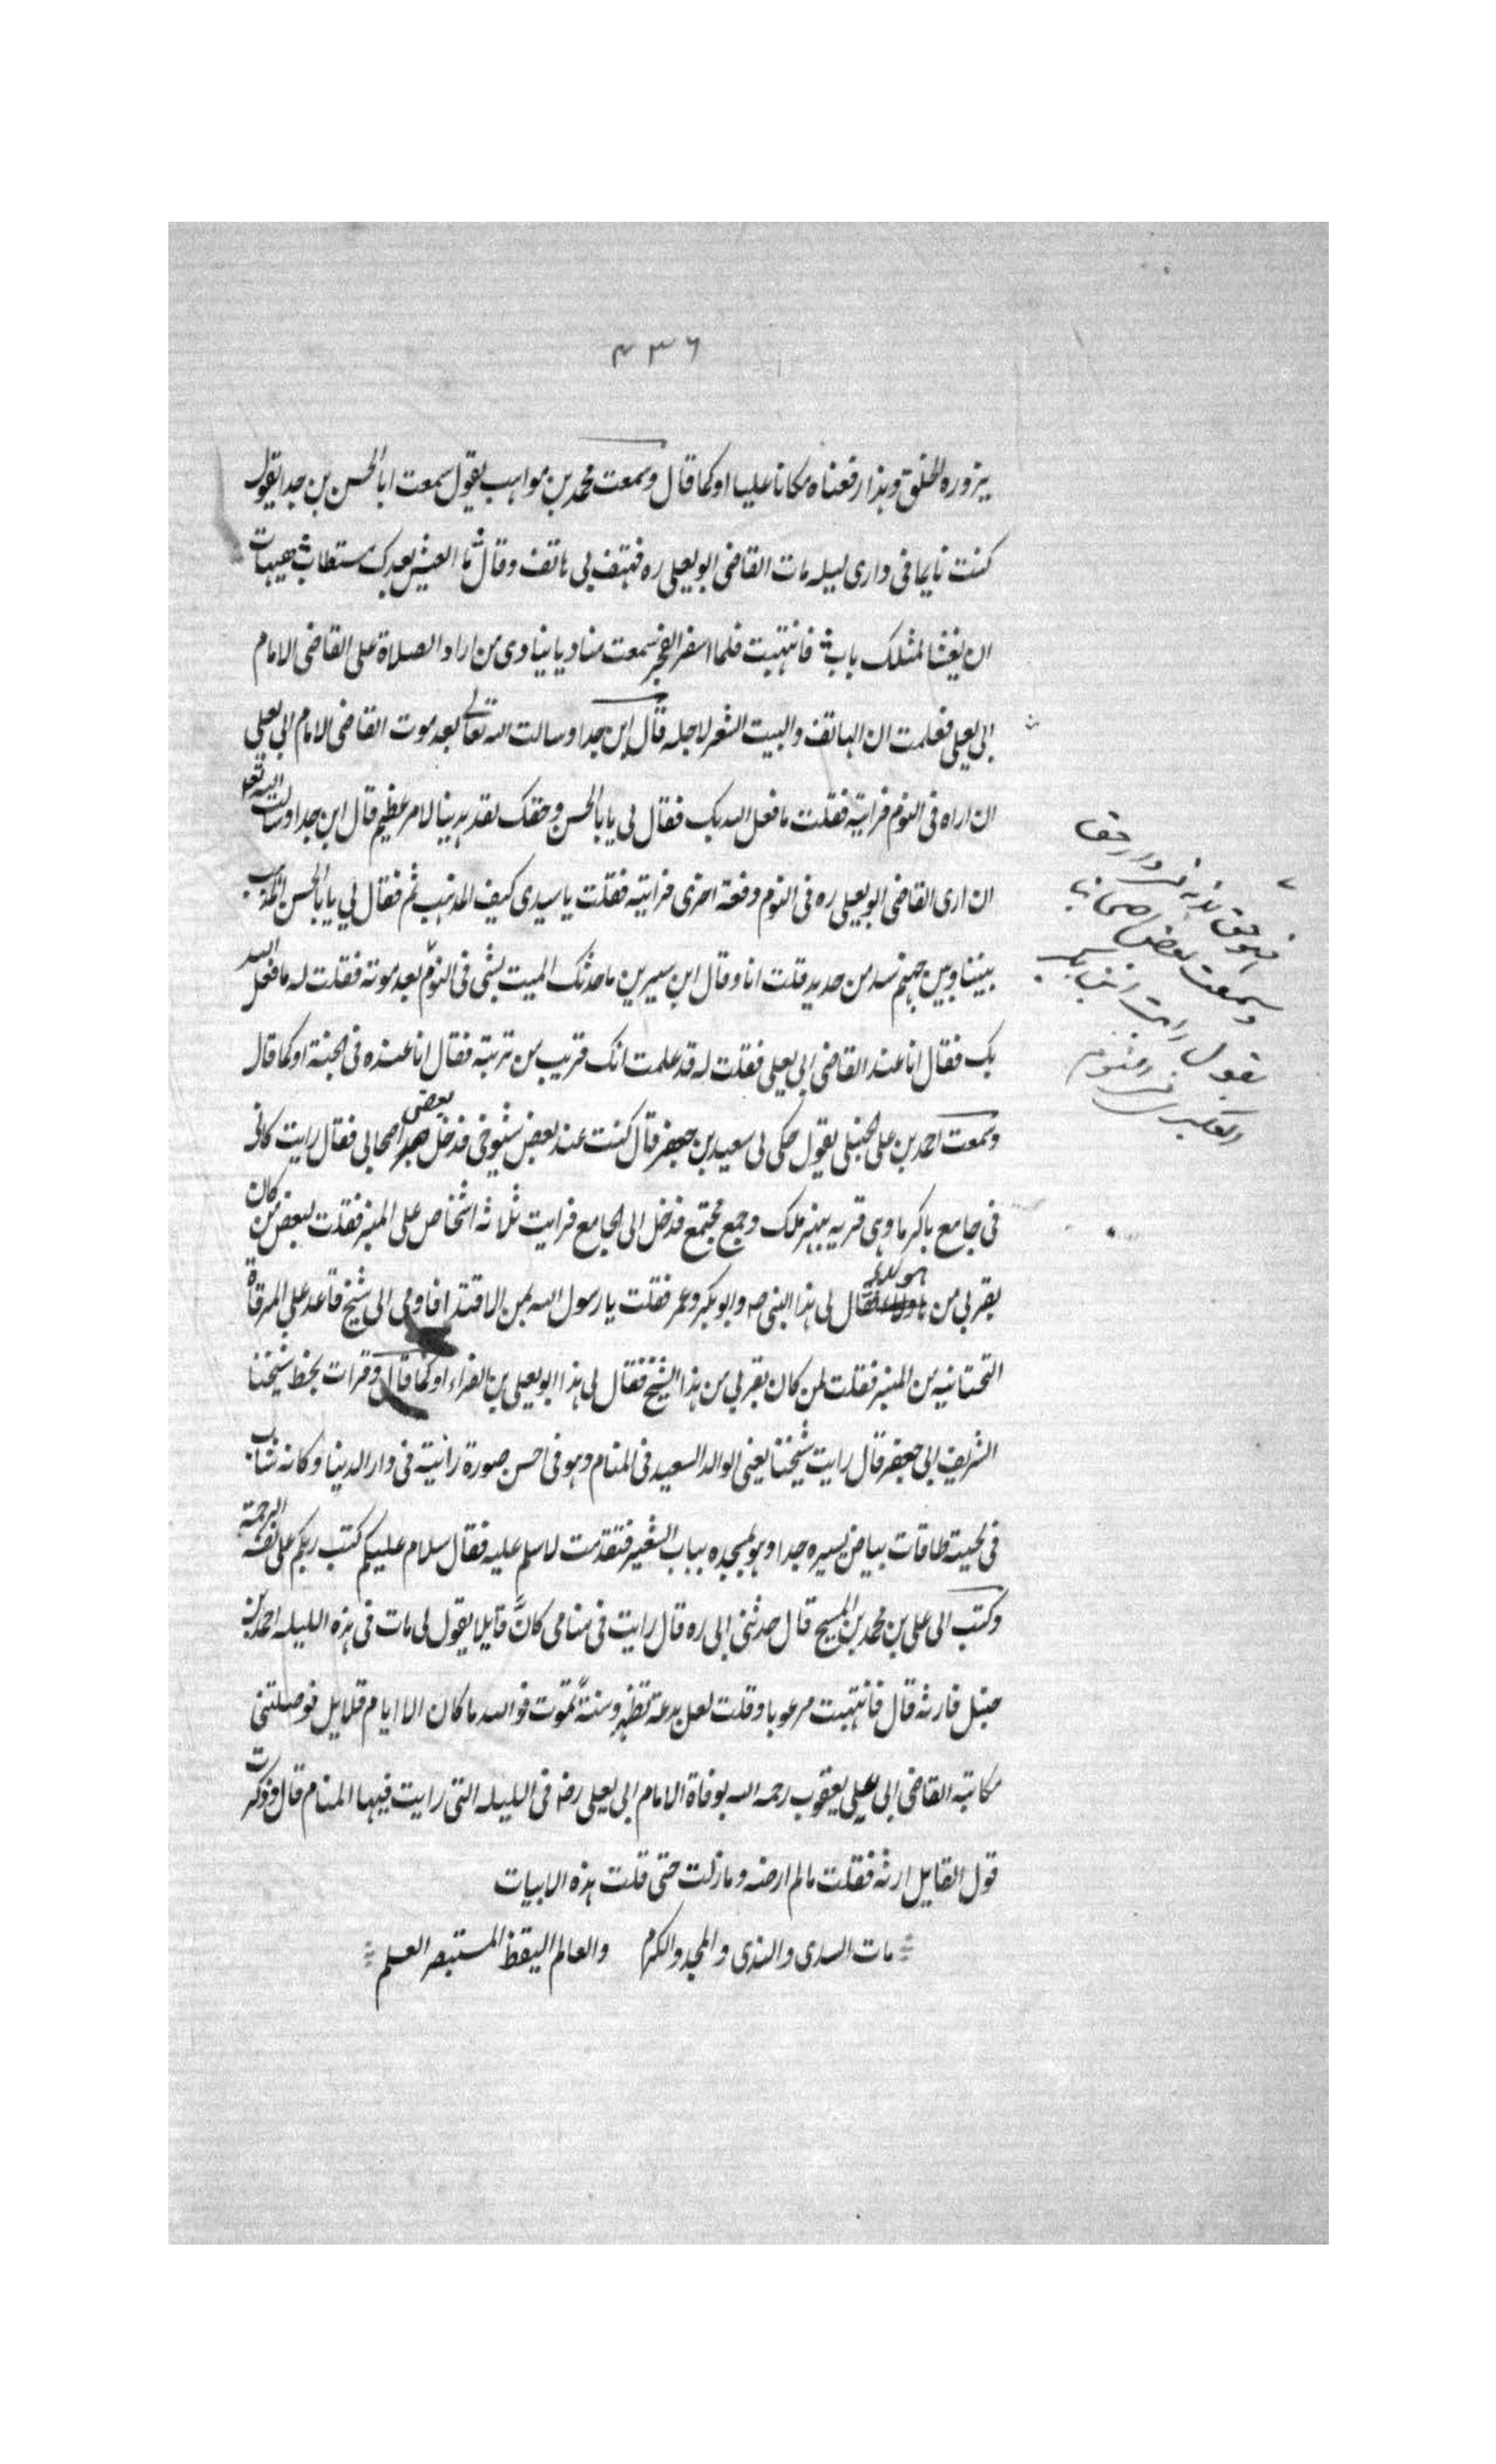 ۴۳۶
يزوره الخلق وهذا رفعناه مكانا عليا اوكما قال وسمعت محمد بن مواهب يقول سمعت ابا الحسن بن جدا يقول
كنت نايما فى دارى ليله مات القاضى ابو يعلى ره فهتف بى هاتف وقال ما العيش بعدك مستطاب هيهات
ان يغشا لمثلك باب فانتبهت فلما اسفر الفجر سمعت مناديا ينادى من اراد الصلاة على القاضى الامام
ابى يعلى فعلمت ان الهاتف والبيت الشعر لاجله قال ابن جدا وسالت الله تعالى بعد موت القاضى الامام ابى يعلى
ان اراه فى النوم فرايته فقلت ما فعل الله بك فقال لى يا با الحسن وحقك لقد هدينا لامر عظيم قال ابن جدا وسالت الله تعا
ان ارى القاضى ابو يعلى ره فى النوم دفعة اخرى فرايته فقلت يا سيدى كيف المذهب ثم فقال لى يا با الحسن المذهب
بيننا وبين جهنم سد من حديد قلت انا وقال ابن سيرين ما حدثك الميت بشى فى النوم بعد موته فقلت له ما فعل الله
بك فقال انا عند القاضى ابى يعلى فقلت له قد علمت انك قريب من تربته فقال انا عنده فى الجنة اوكما قال
وسمعت احمد بن على الحنبلى يقول حكى لى سعيد بن جعفر قال كنت عند بعض شيوخى فدخل بعض اصحابى فقال رايت كانى
فى جامع باكرما وهى قريه بنهر ملك وجمع مجتمع فدخل الى الجامع فرايت ثلاثة اشخاص على المنبر فقلت لبعض من كان
بقربى من هولاء فقال لى هذا النبى صه وابو بكر وعمر فقلت يا رسول الله بمن الاقتدا فاومى الى شيخ قاعد على المرقاة
التحتانيه من المنبر فقلت لمن كان بقربى من هذا الشيخ فقال لى هذا ابو يعلى بن الفراء اوكما قال وقرات بخط شيخنا
الشريف ابى جعفر قال رايت شيخنا يعنى الوالد السعيد فى المنام وهو فى احسن صورة رانيته فى دار الدينا وكانه شاب
فى لحيته طاقات بياض يسيره جدا وهو بمسجده بباب الشعير فتقدمت لاسلم عليه فقال سلام عليكم كتب ربكم على نفسه الرحمة
وكتب الى على بن محمد بن المسيح قال حدثنى ابى ره قال رايت فى منامى كان قايلا يقول لى مات فى هذه الليله احمد بن
حنبل فارثه قال فانتبهت مرعوبا وقلت لعل بدعة تظهر وسنة تموت فوالله ما كان الا ايام قلايل فوصلتنى
مكاتبه القاضى ابى على يعقوب رحمه الله بوفاة الامام ابى يعلى رضه فى الليله التى رايت فيها المنام قال وذكرت
قول القايل ارثه فقلت ما لم ارضه وما زلت حتى قلت هذه الابيات
مات السدى والندى والمجد والكرم والعالم اليقظ المستبصر العلم
وسمعت بعض اصحابنا
يقول رايت ابن بكير
العكبرى فى النوم